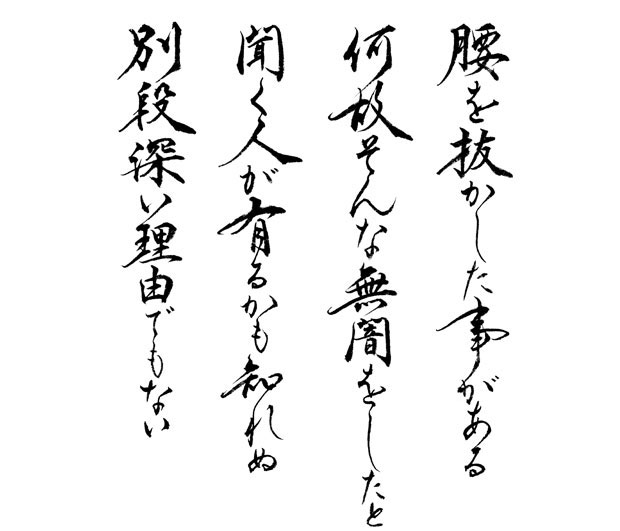 腰を抜かした事がある
何故そんな無闇をしたと
聞く人が有るかも知れぬ
別段深い理由でもない